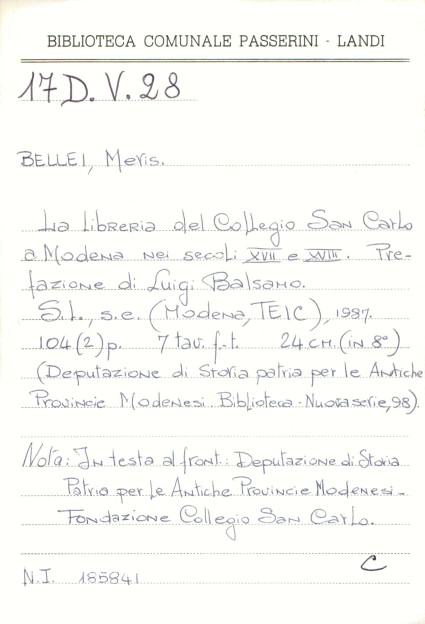 BIBLIOTECA COMUNALE PASSERINI - LANDI
17 D. V. 28
BELLEI, Meris.
La libreria del Collegio San Carlo
a Modena nei secoli XVII e XVIII. Pre-
fazione di Luigi Balsamo.
S.l., s.e. (Modena, TEIC), 1987.
104 (2) p. 7 tav. f.t. 24 cm. (in 8°)
(Deputazione di Storia patria per le Antiche
Provincie Modenesi. Biblioteca - Nuova serie, 98).
Nota: In testa al front.: Deputazione di Storia
Patria per le Antiche Provincie Modenesi -
Fondazione Collegio San Carlo.
C
N.I. 185841